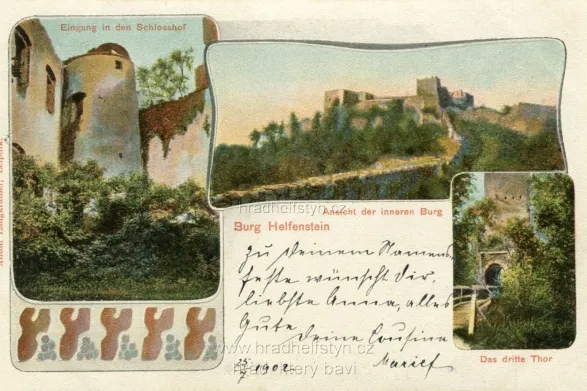 Eingang in den Schlosshof
www.hradhelfstyn.cz
hradhelfstyn.cz
Ansicht der inneren Burg
Burg Helfenstein
Zu Deinem Namens
feste wünscht dir,
liebste Anna, alles
Gute
deine Cousine
www.hradhelfstyn.cz
25/7 1902.
hrad, který baví
Das dritte Thor